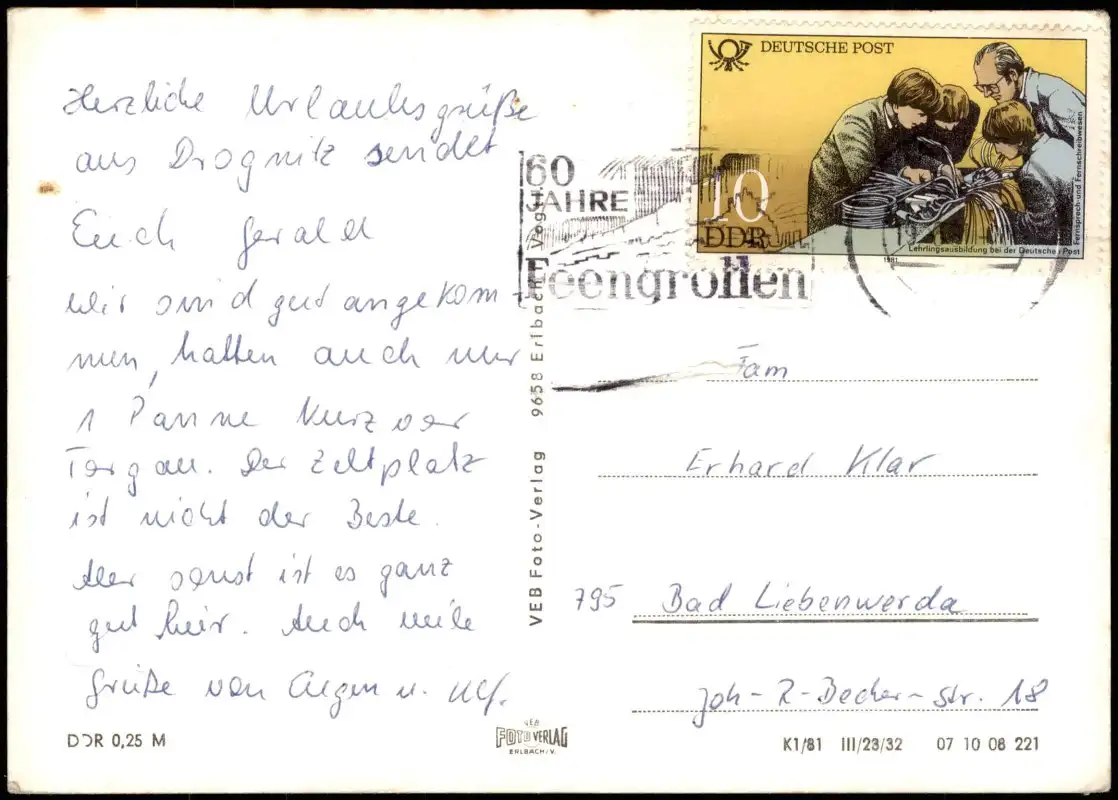 Herzliche Urlaubsgrüße
aus Drognitz sendet
Euch Gerald
Wir sind gut angekom-
men, hatten auch nur
1 Panne kurz vor
Torgau. Der Zeltplatz
ist nicht der Beste.
Aber sonst ist es ganz
gut hier. Auch viele
Grüße von
u. Ulf.
DDR 0,25 M
VEB Foto-Verlag 9658 Erlbach Vogtl.
VEB
FOTO VERLAG
ERLBACH/V.
DEUTSCHE POST
10
DDR
Lehrlingsausbildung bei der Deutschen Post
Fernsprech- und Fernschreibwesen
1981
60
JAHRE
Feengrotten
Fam
Erhard Klar
795 Bad Liebenwerda
Joh-R-Becher-Str. 18
K1/81 III/23/32 07 10 08 221